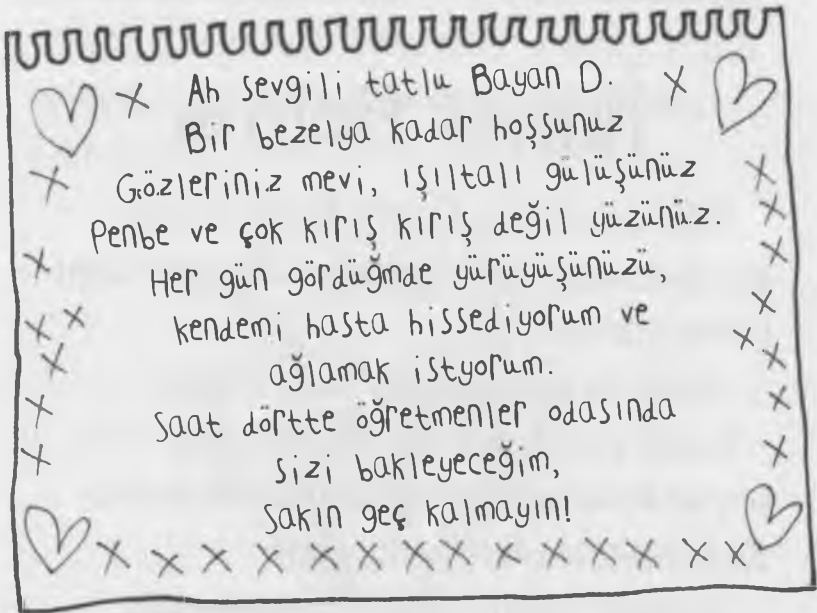 Ah sevgili tatlu Bayan D.
Bir bezelya kadar hoşsunuz
Gözleriniz mevi, ışıltalı gülüşünüz
Penbe ve çok kırış kırış değil yüzünüz.
Her gün gördüğmde yürüyüşünüzü,
kendemi hasta hissediyorum ve
ağlamak istyorum.
Saat dörtte öğretmenler odasında
sizi bakleyeceğim,
sakın geç kalmayın!